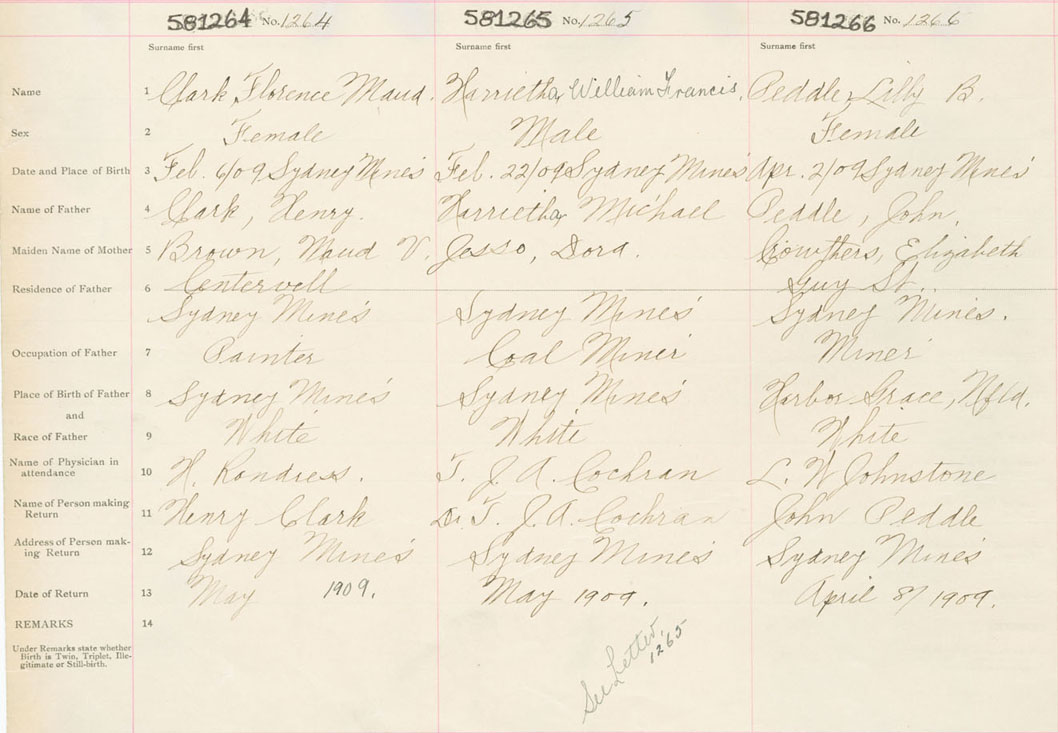 581264 No. 1264 581265 No. 1265 581266 No. 1266
Surname first Surname first Surname first
Name 1 Clark, Florence Maud. Harrietha, William Francis. Peddle, Lilly B.
Sex 2 Female Male Female
Date and Place of Birth 3 Feb. 6/09 Sydney Mines Feb. 22/09 Sydney Mines Apr. 2/09 Sydney Mines
Name of Father 4 Clark, Henry. Harrietha, Michael Peddle, John.
Maiden Name of Mother 5 Brown, Maud V. Jesso, Dora. Elizabeth
Residence of Father 6 Guy St.
Sydney Mines Sydney Mines Sydney Mines.
Occupation of Father 7 Painter Coal Miner Miner
Place of Birth of Father 8 Sydney Mines Sydney Mines Harbor Grace, Nfld.
and
Race of Father 9 White White White
Name of Physician in
attendance 10 H. T. J. A. Cochran L. W Johnstone
Name of Person making
Return 11 Henry Clark Dr. T. J. A. Cochran John Peddle
Address of Person mak-
ing Return 12 Sydney Mines Sydney Mines Sydney Mines
Date of Return 13 May 1909. May 1909. April 8/1909.
REMARKS 14
Under Remarks state whether
Birth is Twin, Triplet, Ille-
gitimate or Still-birth.
See Letter,
1265